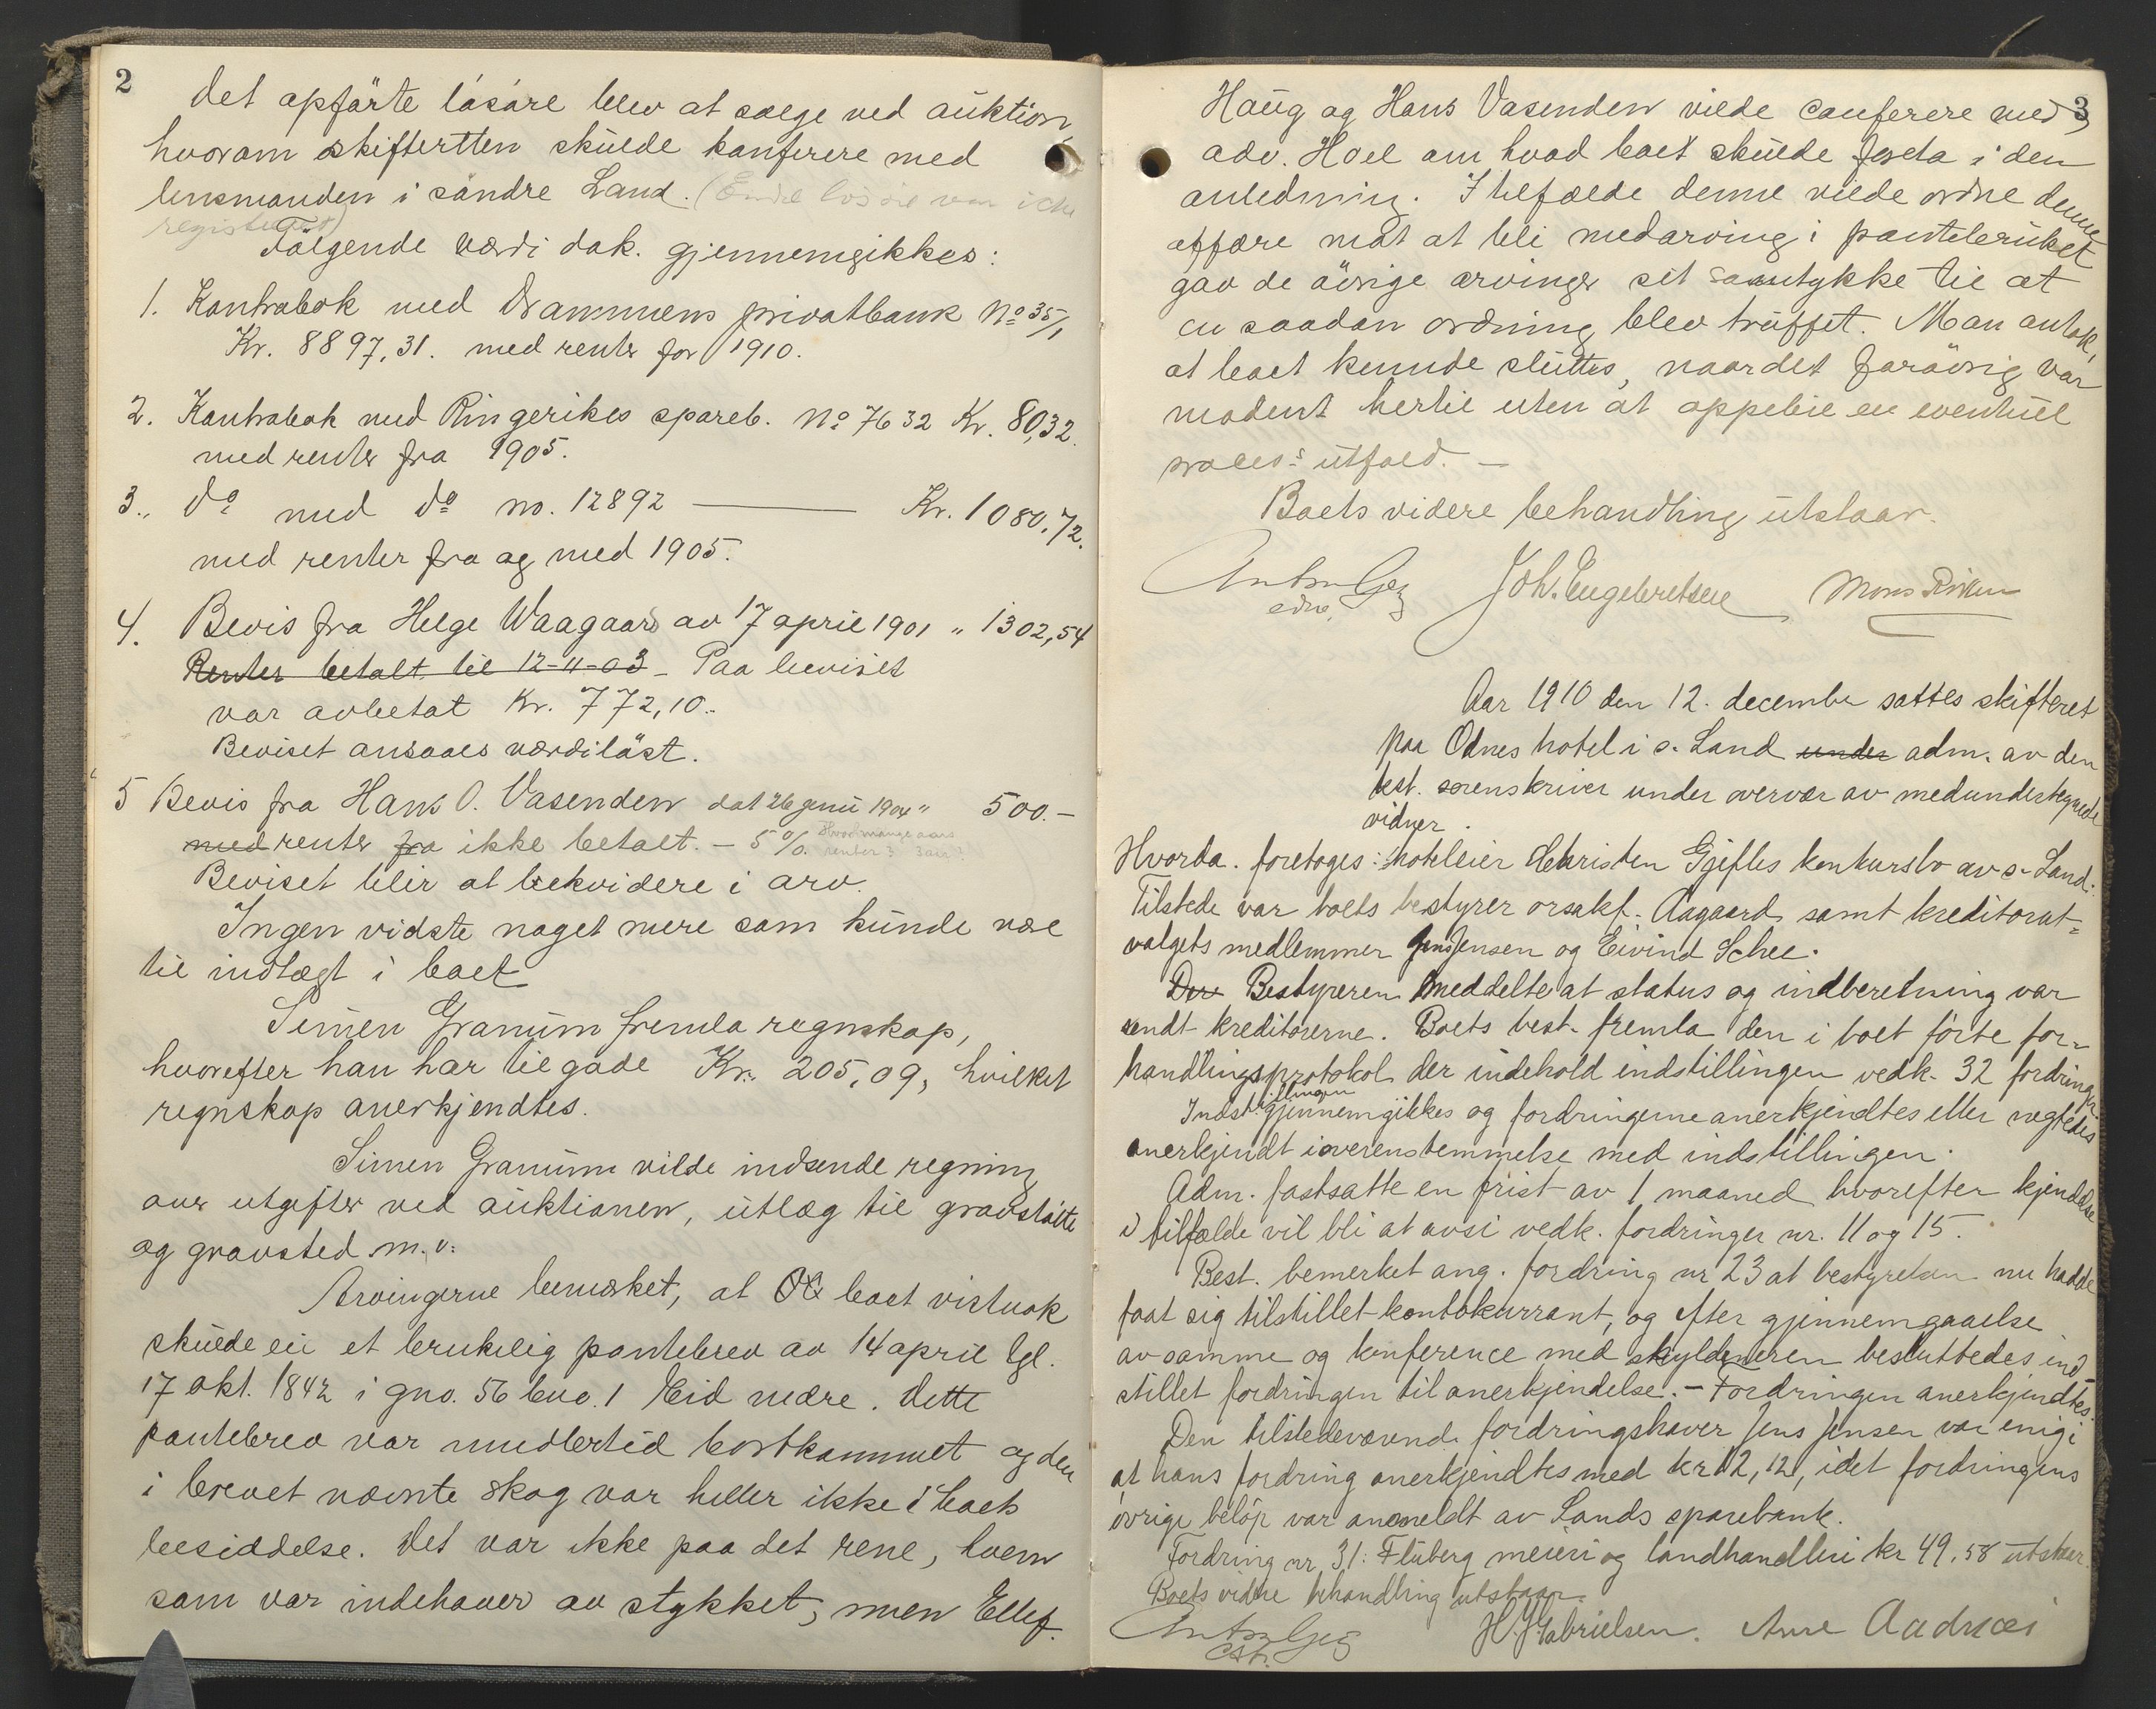 2
Det opførte løsøre blev at sælge ved auktion,
hvorom skifteretten skulde konferere med
lensmanden i søndre Land. (Endel løsøre var ikke
registeret)
Følgende værdi dok. gjennemgikkes:
1. Kontrabok med Drammens privatbank No 35/1
Kr. 8897,31. med renter for 1910.
2. Kontrabok med Ringerikes spareb. No 7632 Kr. 80,32.
med renter fra 1905.
3. do med do no. 12892 — Kr. 1080,72.
med renter fra og med 1905.
4. Bevis fra Helge Waagaard av 17 april 1901 " 1302,54
Renter betalt til 12-11-03 - Paa beviset
var avbetalt Kr. 772,10.
Beviset ansaaes værdiløst.
5 Bevis fra Hans O. Vasenden dat 26 juni 1904 " 500.-
med renter fra ikke betalt. - 5 %. Hvad mange aars
renter? 3 aar?
Beviset blir at likvidere i arv.
Ingen vidste noget mere som kunde være
til indtægt i boet
Simen Granum fremla regnskap,
hvorefter han har tilgode Kr. 205,09, hvilket
regnskap anerkjendtes.
Simen Granum vilde indsende regning
over utgifter ved auktionen, utlæg til gravstøtte
og gravsted m.v.
Arvingerne bemerket, at boet vistnok
skulde eie et brukelig pantebrev av 14 april tgl.
17 okt. 1842 i gno. 56 bno. 1 Eid nedre. Dette
pantebrev var imidlertid bortkommet og den
i brevet nævnte skog var heller ikke i boets
besiddelse. Det var ikke paa det rene, hvem
som var indehaver av stykket, men Ellef
3
Haug og Hans Vasenden vilde conferere med
adv. Hoel om hvad boet skulde foreta i den
anledning. I tilfælde denne vilde ordne denne
affære mot at bli medarving i pantebruket
gav de øvrige arvinger sit samtykke til at
en saadan ordning blev truffet. Man antok,
at boet kunde sluttes, naar det forøvrig var
modent hertil uten at oppebie en eventuel
proces's utfald. —
Boets videre behandling utstaar.
Joh. Engebretsen Mons
Aar 1910 den 12. december sattes skifteret
paa Odnes hotel i s. Land under adm. av den
kst. sorenskriver under overvær av medundertegnede
vidner.
Hvorda. foretoges: hoteleier Christen Gjefles konkursbo av s. Land.
Tilstede var boets bestyrer orsakf. Aagaard samt kreditorut=
valgets medlemmer Jens Jensen og Eivind Schee.
Bestyreren meddelte at status og indberetning var
sendt kreditorerne. Boets best. fremla den i boet førte for=
handlingsprotokol der indehold indstillingen vedk. 32 fordringer.
Indstillingen gjennemgikkes og fordringerne anerkjendtes eller negtedes
anerkjendt i overenstemmelse med indstillingen.
Adm. fastsatte en frist av 1 maaned hvorefter kjendelse
i tilfælde vil bli at avsi vedk. fordringer nr. 11 og 15.
Best. bemerket ang. fordring nr 23 at bestyrelsen nu hadde
faat sig tilstillet kontokurrant, og efter gjennemgaaelse
av samme og konference med skyldneren besluttedes ind-
stillet fordringen til anerkjendelse. - Fordringen anerkjendtes.
Den tilstedeværende fordringshaver Jens Jensen var enig i
at hans fordring anerkjendtes med kr 12,12, idet fordringens
øvrige beløp var anmeldt av Lands sparebank.
Fordring nr. 31: Fluberg meieri og landhandleri kr 49,58 utstaar.
Boets videre behandling utstaar.
H. J. Gabrielsen. Arne